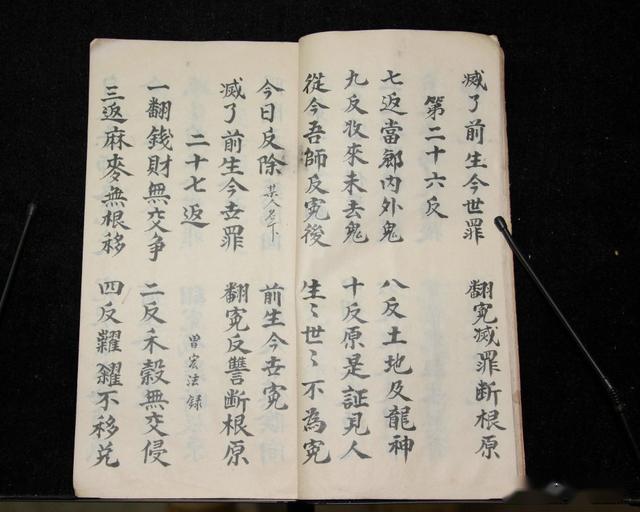 滅了前生今世罪 翻寃滅罪断根原
第二十六反
七返當郎内外鬼 八反土地及龍神
九反收來未去鬼 十反原是証見人
從今吾師反寃後 生〻世〻不為寃
今日反除某人名下 前生今世寃
滅了前生今世罪 翻寃反讐断根原
二十七返 曽宏法録
一翻錢財無交争 二反禾穀無交侵
三返麻麥無根移 四反糶糴不移兑